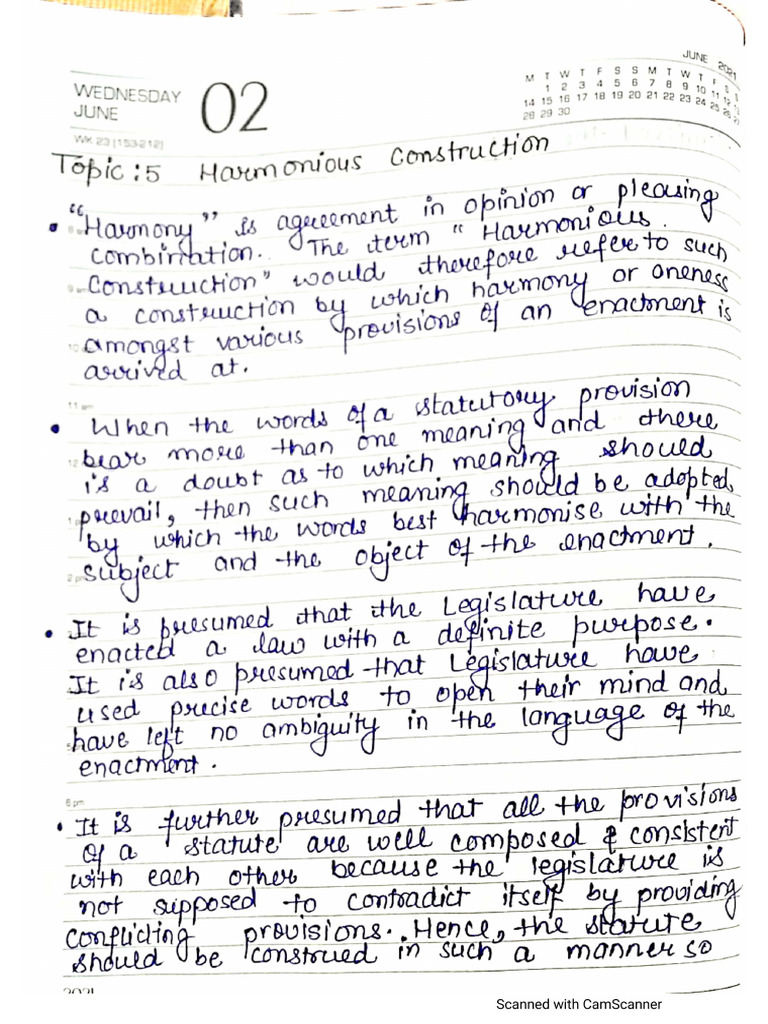 JUNE 2021
M T W T F S S M T W T F S S
1 2 3 4 5 6 7 8 9 10 11 12 13
14 15 16 17 18 19 20 21 22 23 24 25 26 27
28 29 30
WEDNESDAY
JUNE
02
WK 23 (153-212)
Topic:5 Harmonious Construction
• "Harmony" is agreement in opinion or pleasing
combination. The term "Harmonious
Construction" would therefore refer to such
a construction by which harmony or oneness
amongst various provisions of an enactment is
arrived at.
11 am
• When the words of a statutory provision
bear more than one meaning and there
is a doubt as to which meaning should
prevail, then such meaning should be adopted,
by which the words best harmonise with the
subject and the object of the enactment.
• It is presumed that the Legislature have
enacted a law with a definite purpose.
It is also presumed that Legislature have
used precise words to open their mind and
have left no ambiguity in the language of the
enactment.
6 pm
• It is further presumed that all the provisions
of a statute are well composed & consistent
with each other because the legislature is
not supposed to contradict itself by providing
conflicting provisions. Hence, the statute
should be construed in such a manner so
2021
Scanned with CamScanner